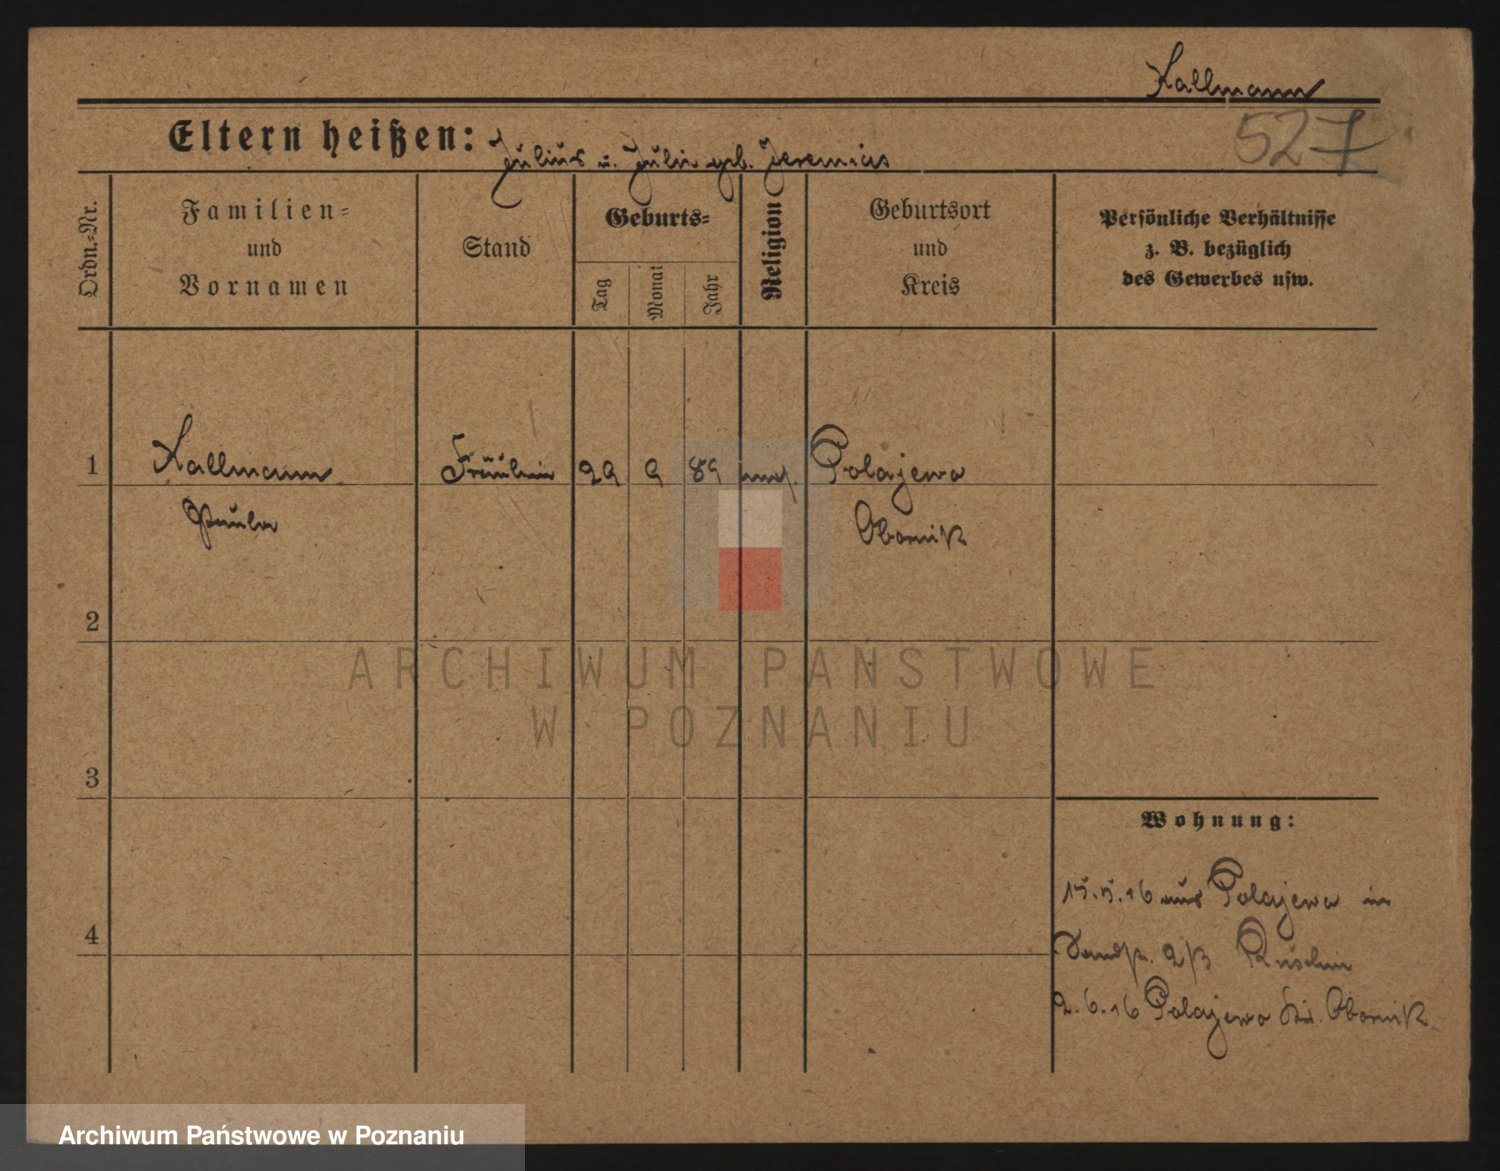 Kallmann
527
Eltern heißen: Julius u. Julie geb. Jeremias
Ordn.=Nr.
Familien=
und
Vornamen
Stand
Geburts=
Tag
Monat
Jahr
Religion
Geburtsort
und
Kreis
Persönliche Verhältnisse
z. B. bezüglich
des Gewerbes usw.
1 Kallmann Fräulein 29 9 89 mos. Polajewo
Paula Obornik
2
3
4
ARCHIWUM PAŃSTWOWE
W POZNANIU
Wohnung:
15.5.16 aus Polajewo in
2/3
2.6.16 Polajewo Kr. Obornik
Archiwum Państwowe w Poznaniu